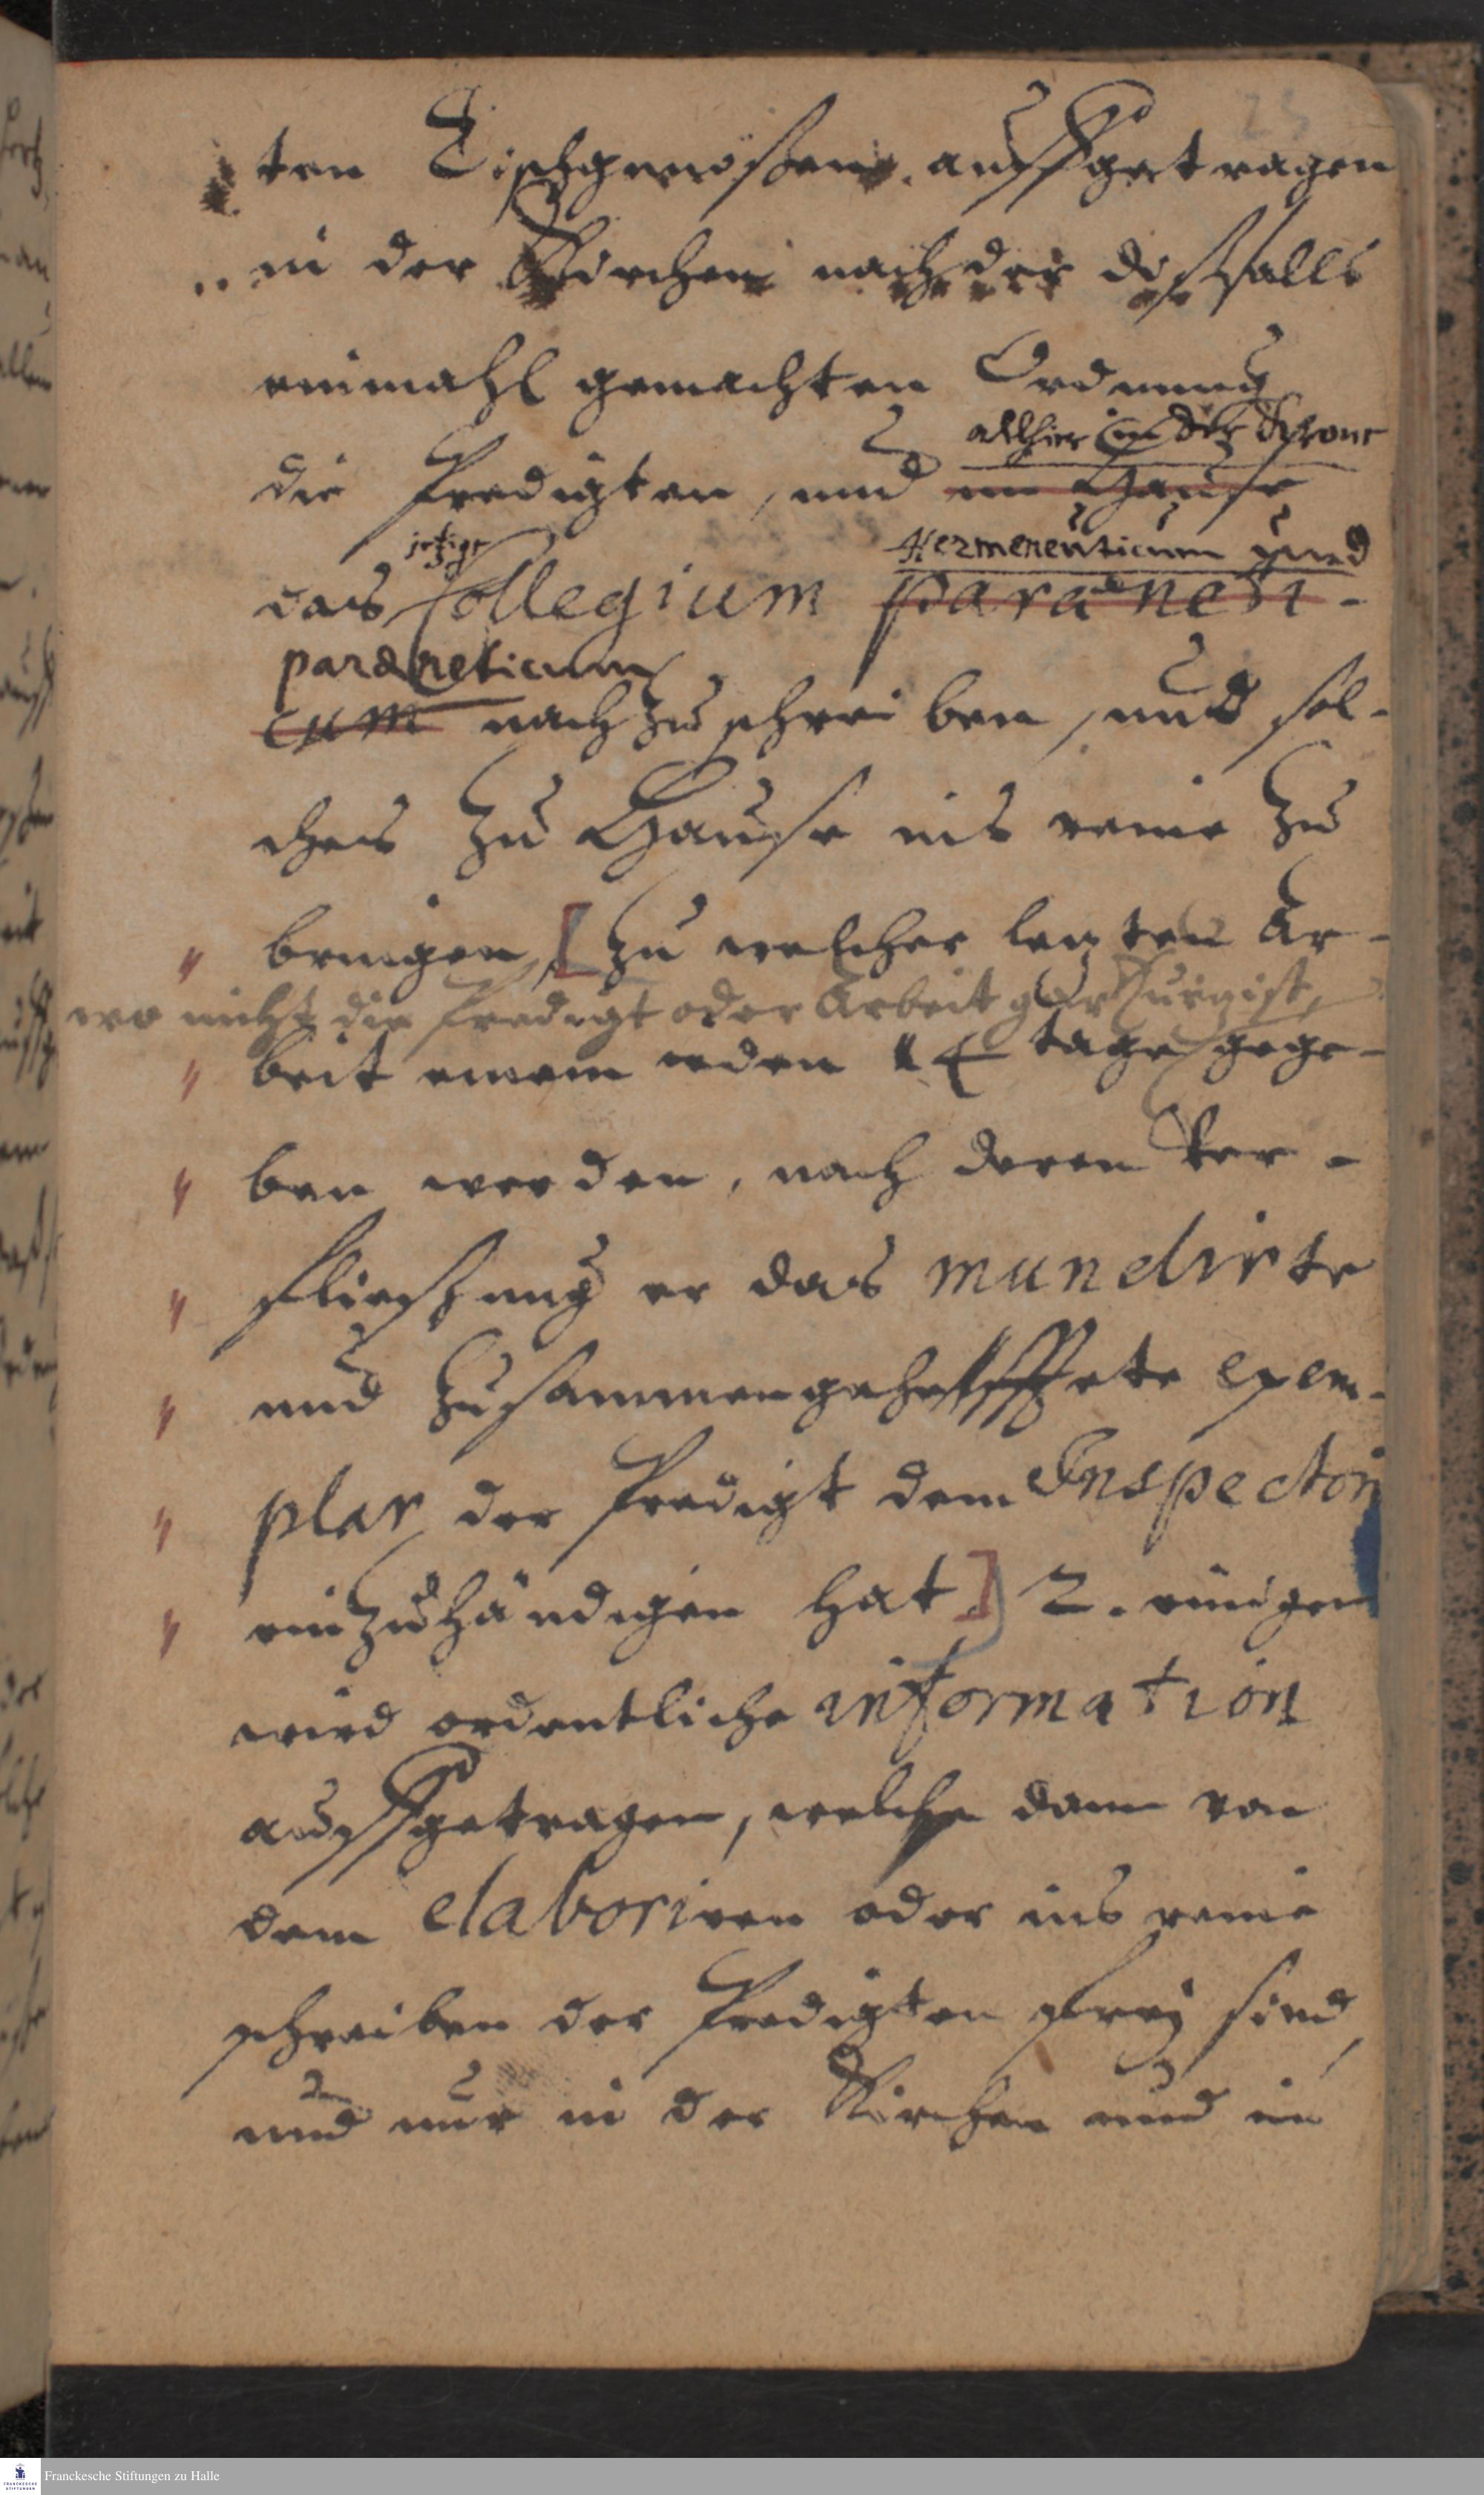 23
ten Tischgenoßen auffgetragen
in der Kirchen nach der dißfalls
einmahl gemachten Ordnung
allhier in der Schone
die Predigten, und im Hause
jetzige Hermeneuticum und
das Collegium paraeneti-
paraeneticum
cum nachzuschreiben, und sol-
ches zu Hause ins reine zu
bringen, [zu welcher letzten Ar-
wo nicht die Predigt oder Arbeit gar kurz ist,
beit einem jeden tage gege-
ben werden, nach deren Ver-
fließung er das mundirte
und zusammengehefftete exem-
plar der Predigt dem Inspectori
einzuhändigen hat] 2. einigen
wird ordentliche information
auffgetragen, welche dann von
dem elaboriren oder ins reine
schreiben der Predigten frey sind,
und nur in der Kirchen und in
Franckesche Stiftungen zu Halle